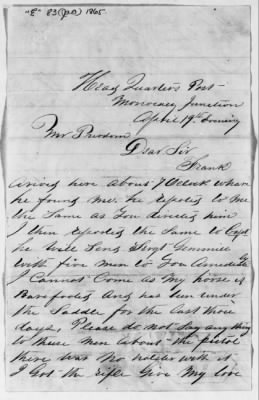 "E" 83 (JAO) 1865
Head Quarters Post
Monocacy Junction
April 19th Evening
Mr Purdom
Dear Sir
Frank
arived here about 7 Oclock whare
he found me. he repotig to me
the Same as You directig him
I then repotig the Same to Capt
he will Seng Sergt Gemmill
with five men to You
I Cannot Come as My horse is
Barefootig and has been under
the Saddle for the Last thre
days, Please do not Say any thing
to these men about the pistol
there was No with it
I Got the rifle Give My love